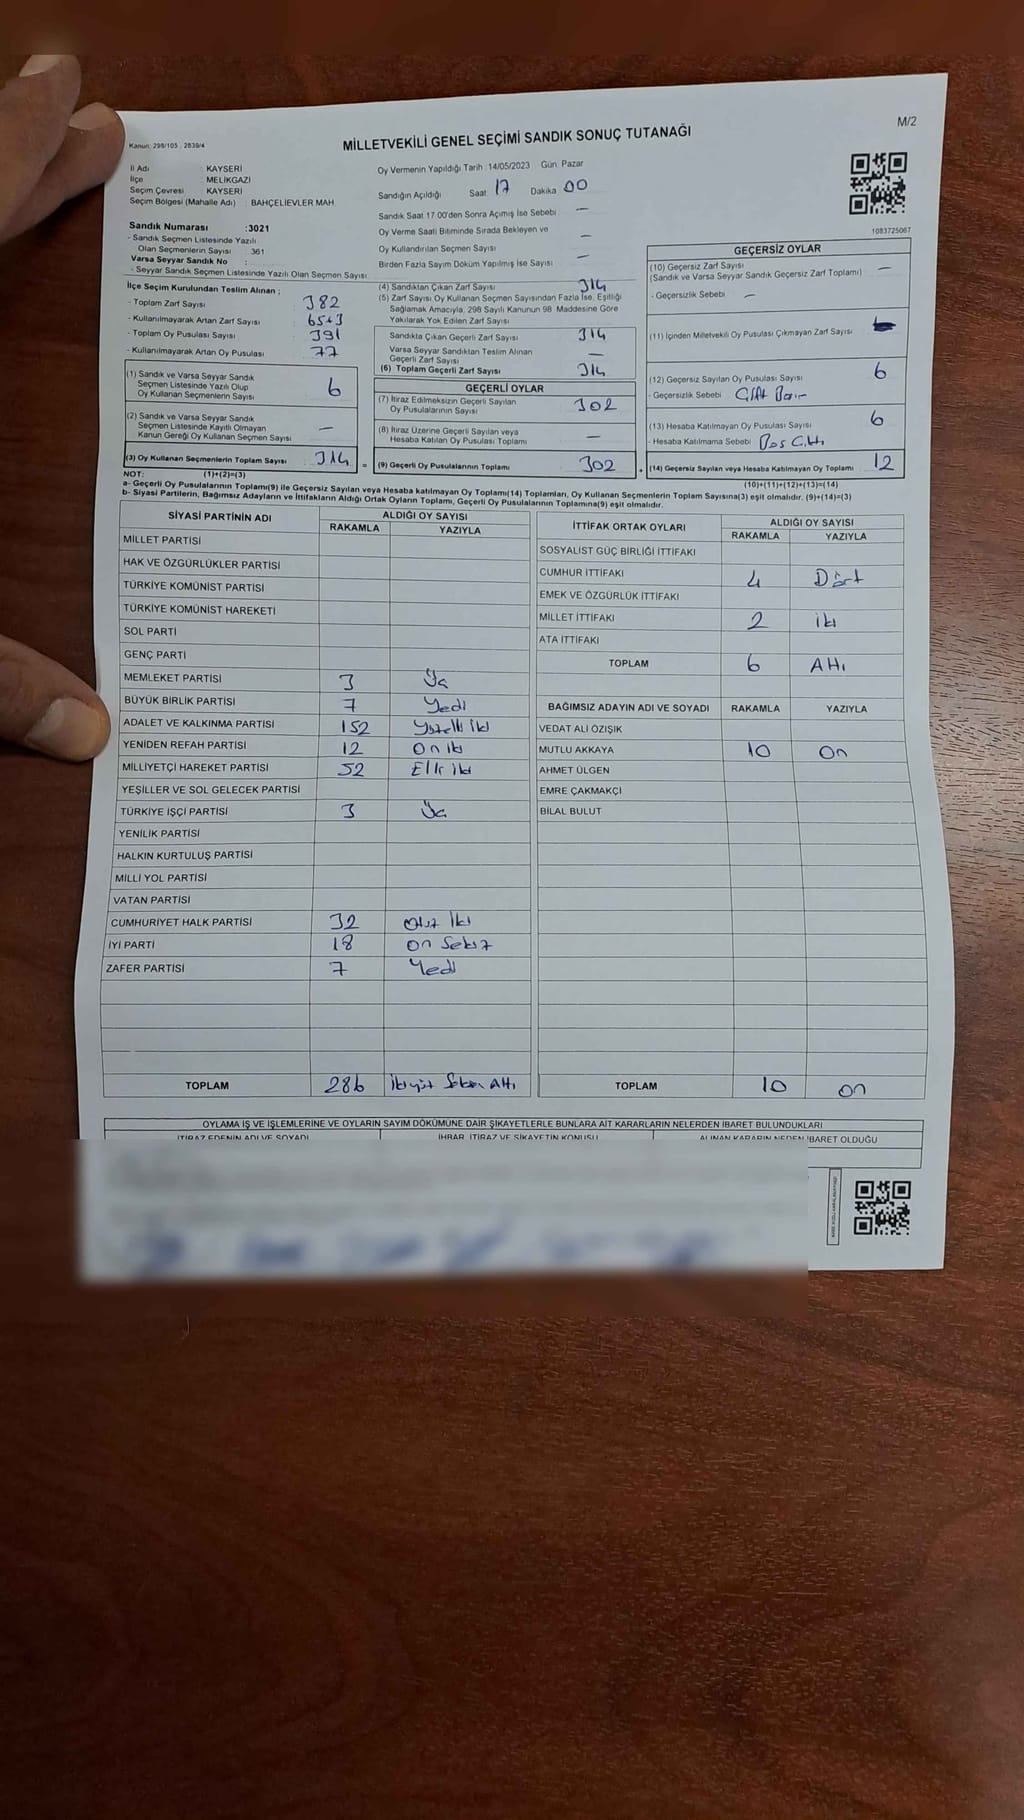 M/2
Kanun: 298/105, 2839/4
MİLLETVEKİLİ GENEL SEÇİMİ SANDIK SONUÇ TUTANAĞI
İl Adı : KAYSERİ
İlçe : MELİKGAZİ
Seçim Çevresi : KAYSERİ
Seçim Bölgesi (Mahalle Adı) : BAHÇELİEVLER MAH.
Oy Vermenin Yapıldığı Tarih : 14/05/2023 Gün: Pazar
Sandığın Açıldığı Saat: 17 Dakika 00
Sandık Saat 17.00'den Sonra Açımış İse Sebebi : —
Oy Verme Saati Bitiminde Sırada Bekleyen ve
Oy Kullandırılan Seçmen Sayısı : —
Birden Fazla Sayım Döküm Yapılmış İse Sayısı : —
Sandık Numarası :3021
- Sandık Seçmen Listesinde Yazılı
Olan Seçmenlerin Sayısı : 361
Varsa Seyyar Sandık No :
- Seyyar Sandık Seçmen Listesinde Yazılı Olan Seçmen Sayısı:
1083725067
İlçe Seçim Kurulundan Teslim Alınan ;
- Toplam Zarf Sayısı 382
- Kullanılmayarak Artan Zarf Sayısı 65+3
- Toplam Oy Pusulası Sayısı 391
- Kullanılmayarak Artan Oy Pusulası 77
(1) Sandık ve Varsa Seyyar Sandık
Seçmen Listesinde Yazılı Olup
Oy Kullanan Seçmenlerin Sayısı 6
(2) Sandık ve Varsa Seyyar Sandık
Seçmen Listesinde Kayıtlı Olmayan
Kanun Gereği Oy Kullanan Seçmen Sayısı —
(3) Oy Kullanan Seçmenlerin Toplam Sayısı 314
(4) Sandıktan Çıkan Zarf Sayısı 314
(5) Zarf Sayısı Oy Kullanan Seçmen Sayısından Fazla İse, Eşitliği
Sağlamak Amacıyla, 298 Sayılı Kanunun 98. Maddesine Göre
Yakılarak Yok Edilen Zarf Sayısı
Sandıkta Çıkan Geçerli Zarf Sayısı 314
Varsa Seyyar Sandıktan Teslim Alınan
Geçerli Zarf Sayısı —
(6) Toplam Geçerli Zarf Sayısı 314
GEÇERLİ OYLAR
(7) İtiraz Edilmeksizin Geçerli Sayılan
Oy Pusulalarının Sayısı 302
(8) İtiraz Üzerine Geçerli Sayılan veya
Hesaba Katılan Oy Pusulası Toplamı —
= (9) Geçerli Oy Pusulalarının Toplamı 302
GEÇERSİZ OYLAR
(10) Geçersiz Zarf Sayısı
(Sandık ve Varsa Seyyar Sandık Geçersiz Zarf Toplamı) —
- Geçersizlik Sebebi : —
(11) İçinden Milletvekili Oy Pusulası Çıkmayan Zarf Sayısı
(12) Geçersiz Sayılan Oy Pusulası Sayısı 6
- Geçersizlik Sebebi :
(13) Hesaba Katılmayan Oy Pusulası Sayısı 6
- Hesaba Katılmama Sebebi :
(14) Geçersiz Sayılan veya Hesaba Katılmayan Oy Toplamı 12
NOT: (1)+(2)=(3) (10)+(11)+(12)+(13)=(14)
a- Geçerli Oy Pusulalarının Toplamı(9) ile Geçersiz Sayılan veya Hesaba katılmayan Oy Toplamı(14) Toplamları, Oy Kullanan Seçmenlerin Toplam Sayısına(3) eşit olmalıdır. (9)+(14)=(3)
b- Siyasi Partilerin, Bağımsız Adayların ve İttifakların Aldığı Ortak Oyların Toplamı, Geçerli Oy Pusulalarının Toplamına(9) eşit olmalıdır.
SİYASİ PARTİNİN ADI ALDIĞI OY SAYISI
RAKAMLA YAZIYLA
MİLLET PARTİSİ
HAK VE ÖZGÜRLÜKLER PARTİSİ
TÜRKİYE KOMÜNİST PARTİSİ
TÜRKİYE KOMÜNİST HAREKETİ
SOL PARTİ
GENÇ PARTİ
MEMLEKET PARTİSİ 3 Üç
BÜYÜK BİRLİK PARTİSİ 7 Yedi
ADALET VE KALKINMA PARTİSİ 152 Yüzelli iki
YENİDEN REFAH PARTİSİ 12 On iki
MİLLİYETÇİ HAREKET PARTİSİ 52 Elli iki
YEŞİLLER VE SOL GELECEK PARTİSİ
TÜRKİYE İŞÇİ PARTİSİ 3 Üç
YENİLİK PARTİSİ
HALKIN KURTULUŞ PARTİSİ
MİLLİ YOL PARTİSİ
VATAN PARTİSİ
CUMHURİYET HALK PARTİSİ 32 Otuz İki
İYİ PARTİ 18 on Sekiz
ZAFER PARTİSİ 7 Yedi
TOPLAM 286 İkiyüz Seksen Altı
İTTİFAK ORTAK OYLARI ALDIĞI OY SAYISI
RAKAMLA YAZIYLA
SOSYALİST GÜÇ BİRLİĞİ İTTİFAKI
CUMHUR İTTİFAKI 4 Dört
EMEK VE ÖZGÜRLÜK İTTİFAKI
MİLLET İTTİFAKI 2 iki
ATA İTTİFAKI
TOPLAM 6 Altı
BAĞIMSIZ ADAYIN ADI VE SOYADI RAKAMLA YAZIYLA
VEDAT ALİ ÖZIŞIK
MUTLU AKKAYA 10 On
AHMET ÜLGEN
EMRE ÇAKMAKÇİ
BİLAL BULUT
TOPLAM 10 on
OYLAMA İŞ VE İŞLEMLERİNE VE OYLARIN SAYIM DÖKÜMÜNE DAİR ŞİKAYETLERLE BUNLARA AİT KARARLARIN NELERDEN İBARET BULUNDUKLARI
İTİRAZ EDENİN ADI VE SOYADI İHBAR, İTİRAZ VE ŞİKAYETİN KONUSU ALINAN KARARIN NEDEN İBARET OLDUĞU